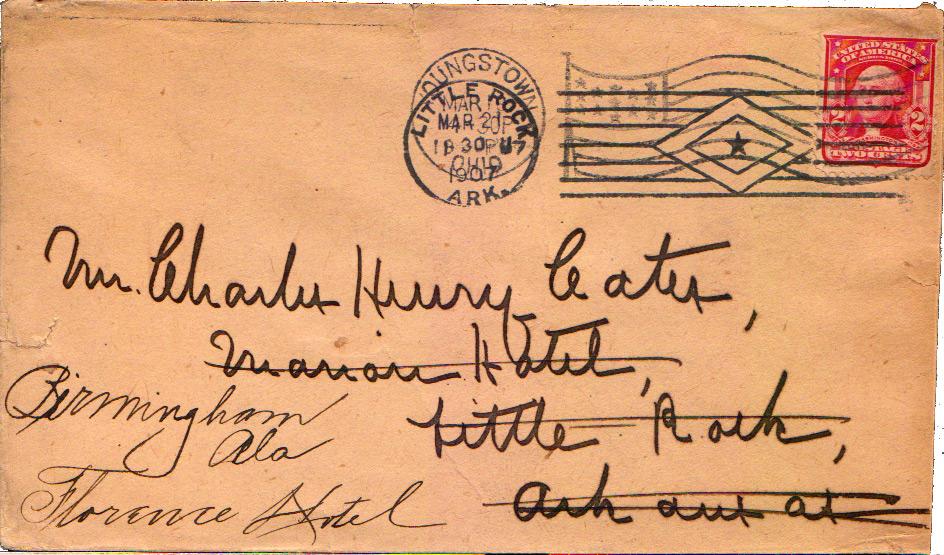 YOUNGSTOWN
MAR
430P
OHIO
1907
LITTLE ROCK
MAR 21
ARK.
UNITED STATES
OF AMERICA
2 2
POSTAGE
TWO CENTS
Mr. Charles Henry Cates,
Marion Hotel,
Little Rock,
Arkansas
Birmingham
Ala
Florence Hotel